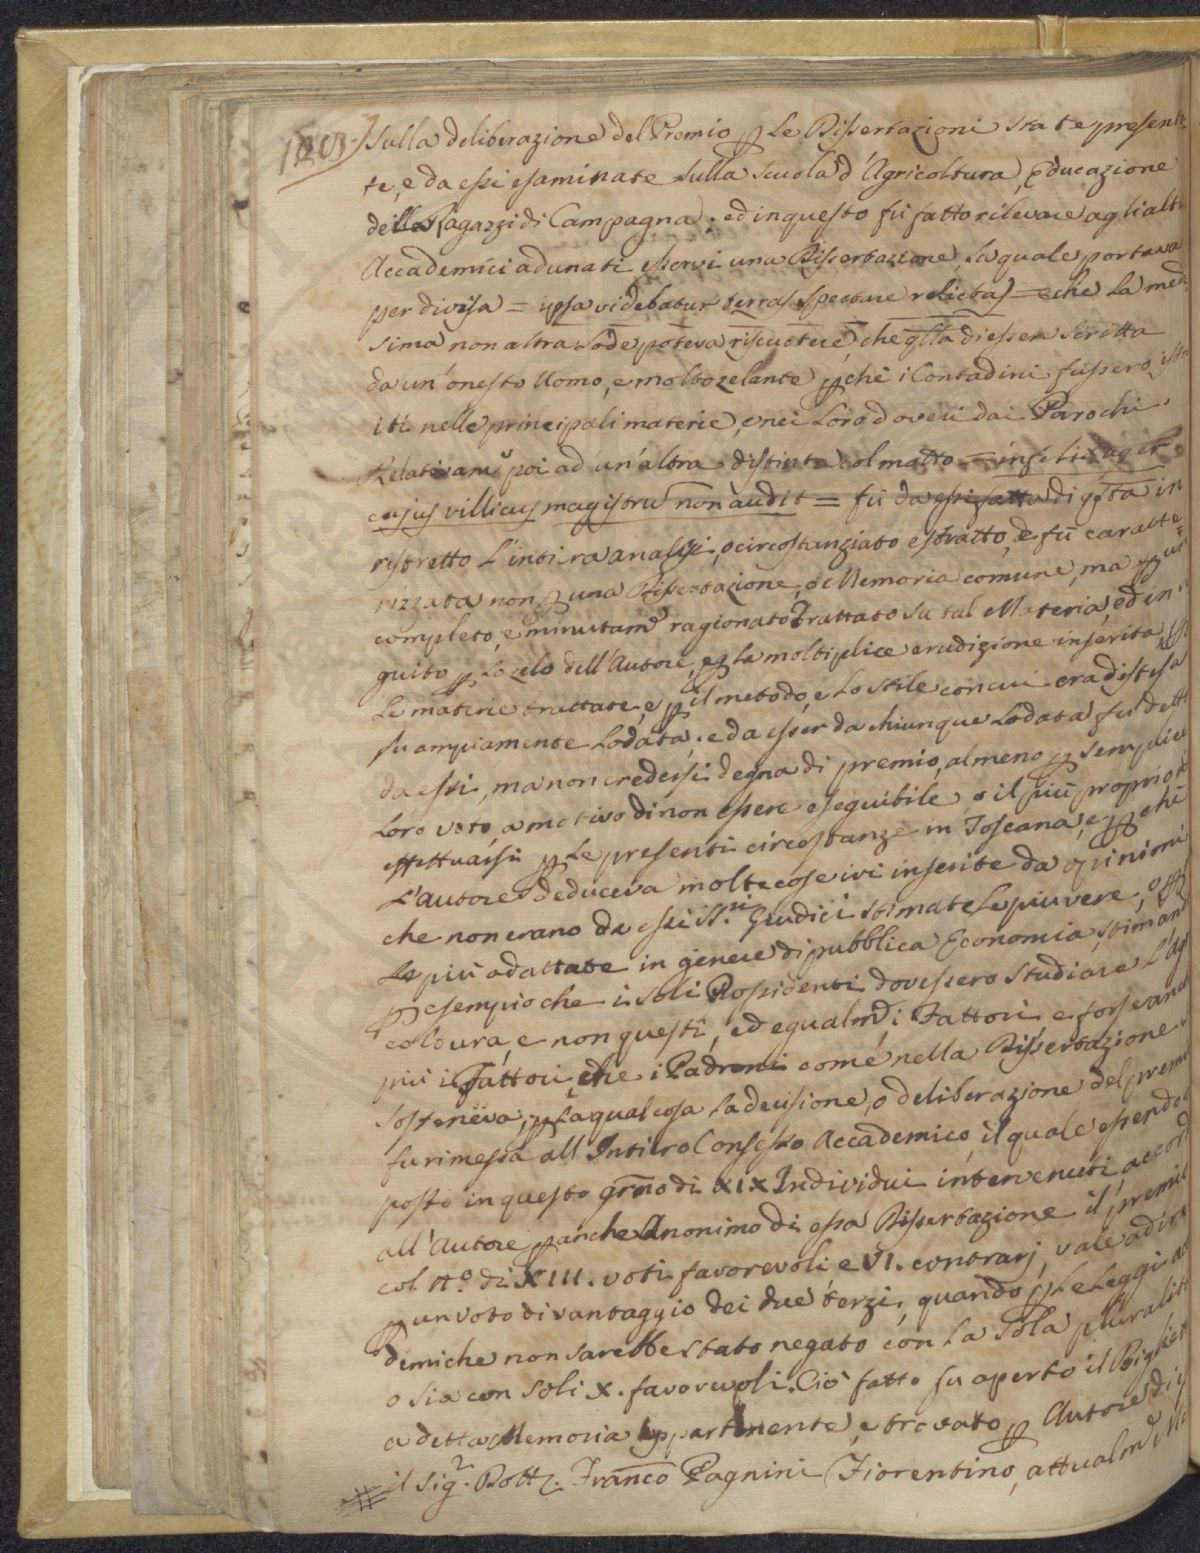 sulla deliberazione del Premio p Le Dissertazioni state presenta
te, e da essi esaminate sulla scuola d'Agricoltura, Educazione
delle Ragazzi di Campagna; ed in questo fù fatto rilevare agli altri
Accademici adunati esservi una Dissertazione, la quale portava
per divisa = ipsa videbatur terras spectare relictas = e che la mede
sima non altra Lode poteva riscuotere, che qlla di essere scritta
da un' onesto Uomo, e molto zelante pchè i Contadini fussero istru
iti nelle principali materie, e nei Loro doveri dai Parochi.
Relativam.e poi ad un'altra distinta col motto = infelix ager
cujus villicus magistrū non audit = fù da essi fatta di qsta in
ristretto L'intira analisi, o circostanziato estratto, e fù caratte
rizzata non p una Dissertazione, o Memoria comune, ma p un
completo, e minutam.e ragionato Trattato su tal Materia, ed in
guito p Lo zelo dell'Autore, e p la moltiplice erudizione inserita p
Le materie trattate, e p il metodo, e Lo stile con cui era distesa
fu ampiamente Lodata, e da esser da chiunque Lodata fu detto
da essi, ma non credersi degna di premio, almeno p semplice
Loro voto, a motivo di non essere eseguibile, o il più proprio a
effettuarsi p Le presenti circostanze in Toscana, e p chè
L'Autore deduceva molte cose ivi inserite da opinioni
che non erano da essi SS.ri Giudici stimate Le più vere, o p
Le più adattate in genere di pubblica Economia, stimand
p esempio che i soli Possidenti dovessero studiare L'Agri
coltura, e non questi, ed egualm.e i Fattori e forse anche
più i Fattori, che i Padroni come nella Dissertazione si
sosteneva, p La qual cosa la decisione, o deliberazione del premio
fu rimessa all'Intiero Consesso Accademico, il quale essendo
posto in questo grno di XIX Individui intervenuti, accord
all'Autore p anche Anonimo di essa Dissertazione il premio
col n.o di XIII. voti favorevoli, e VI. contrarj, vale a dire
p un voto di vantaggio dei due terzi, quando p Le Leggi ac
demiche non sarebbe stato negato con La sola pluralità
o sia con soli X. favorevoli. Ciò fatto fu aperto il Bigliett
a detta Memoria appartenente, e trovato p Autore di
il Sig.r Dott. Franco Pagnini Fiorentino, attualm.e